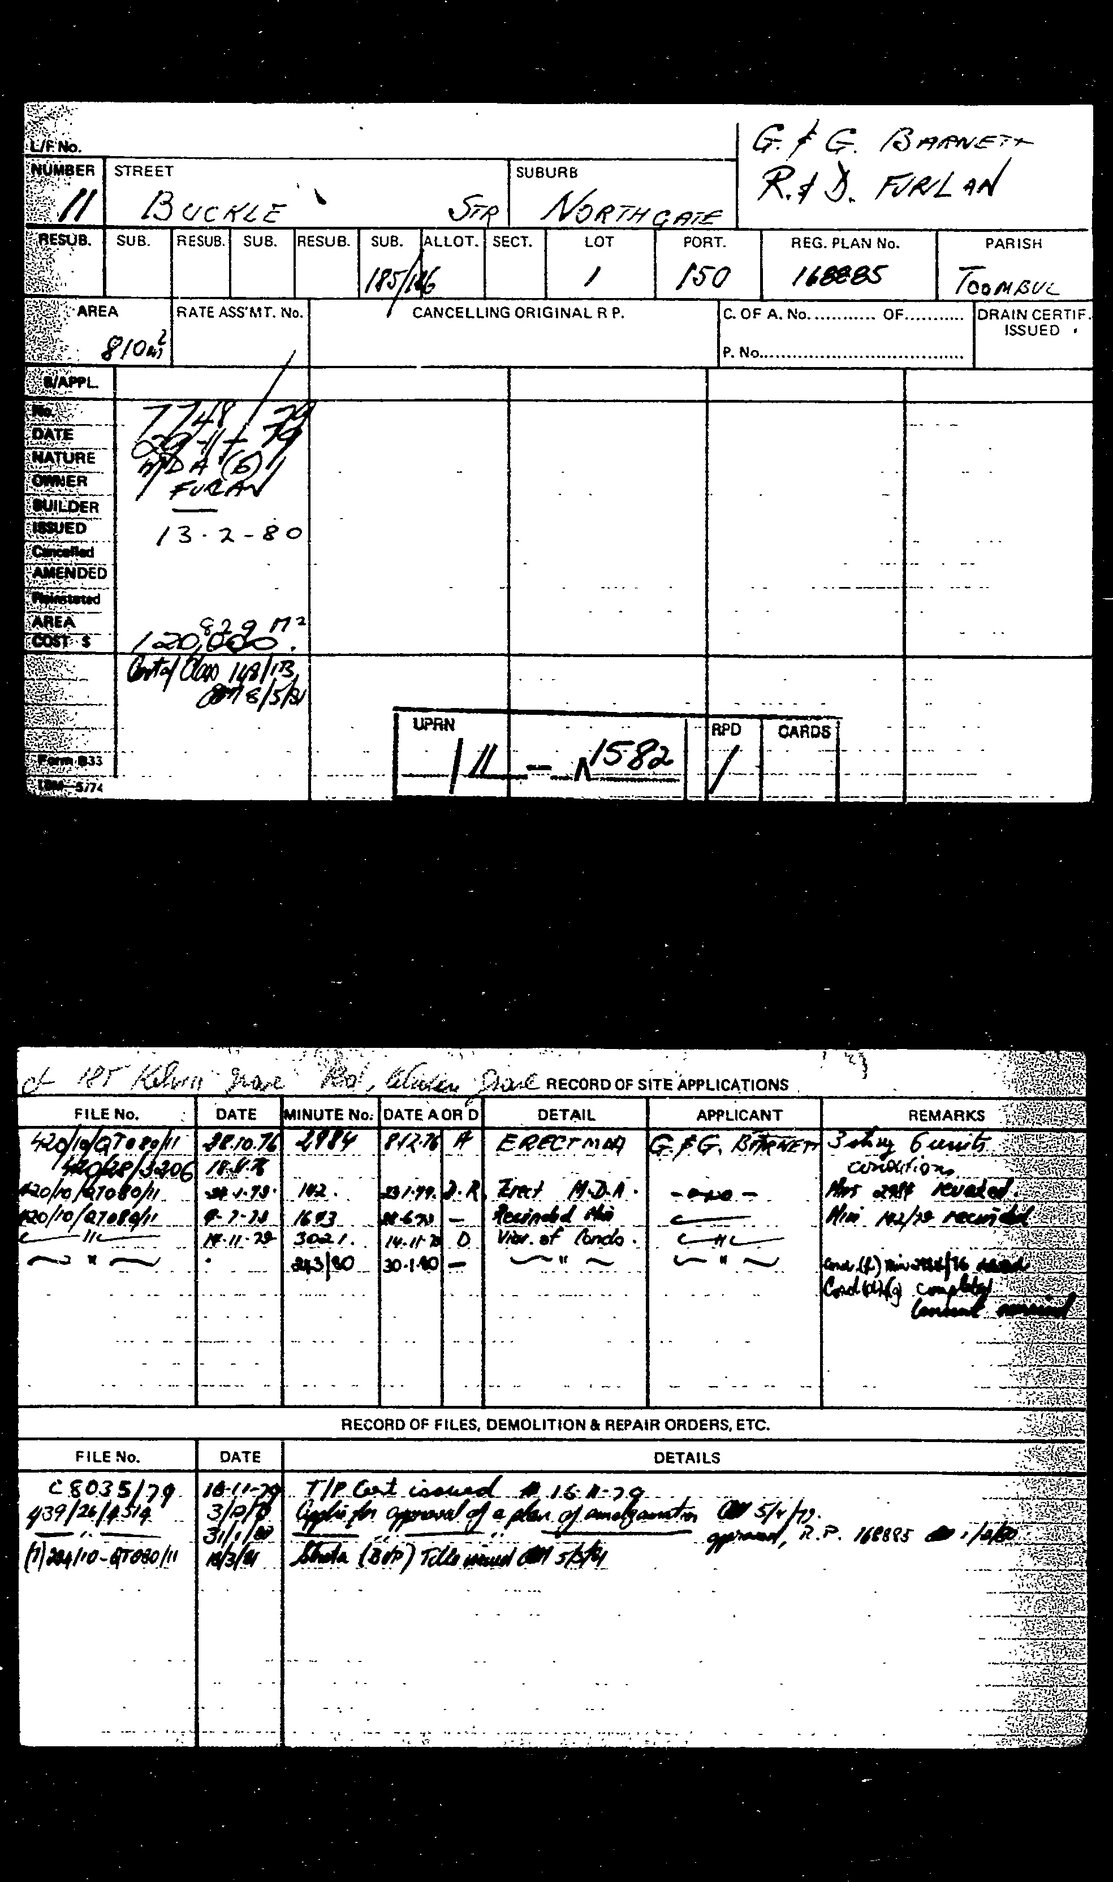 L/F No.
G. & G. BARNETT
R. & D. FURLAN
NUMBER STREET SUBURB
11 BUCKLE STR NORTHGATE
RESUB. SUB. RESUB. SUB. RESUB. SUB. ALLOT. SECT. LOT PORT. REG. PLAN No. PARISH
185/186 1 150 168885 TOOMBUL
AREA RATE ASS'MT. No. CANCELLING ORIGINAL R P. C. OF A. No............ OF........... DRAIN CERTIF. ISSUED
810m2 P. No......................................
B/APPL.
No. 7748/79
DATE 29-11-79
NATURE MDA (6)
OWNER FURLAN
BUILDER —
ISSUED 13-2-80
Cancelled
AMENDED
Reinstated
AREA 829 M2
COST $ 120,000.
Cert of Class 148/1B
8/5/81
UPRN RPD CARDS
111 - 1582 1
Form B33
5/74
185 Kelvin Grove Rd, Kelvin Grove RECORD OF SITE APPLICATIONS
FILE No. DATE MINUTE No. DATE A OR D DETAIL APPLICANT REMARKS
420/10/QT080/11 28.10.76 2984 8/12.76 A ERECT MDA G. & G. BARNETT 3 storey 6 units
420/28/3206 conditions
420/10/QT080/11 142. 23.1.79. D.R. Erect M.D.A. -"- Min 2984 rescinded.
420/10/QT080/11 9-7-79 1693 — Rescinded Min Min 142/79 rescinded
" 14-11-79 3021. 14-11-79 D Viar. of Conds. "
" 243/80 30-1-80 — " "
RECORD OF FILES, DEMOLITION & REPAIR ORDERS, ETC.
FILE No. DATE DETAILS
C8035/79 16-11-79 T/P Cert issued 16-11-79
439/26/4519 Applic for approval of a plan of amalgamation
" 31/1/80 " approved, R.P. 168885
(7) 284/10-QT080/11 18/3/81 Strata (BUP) Title issued 5/5/81